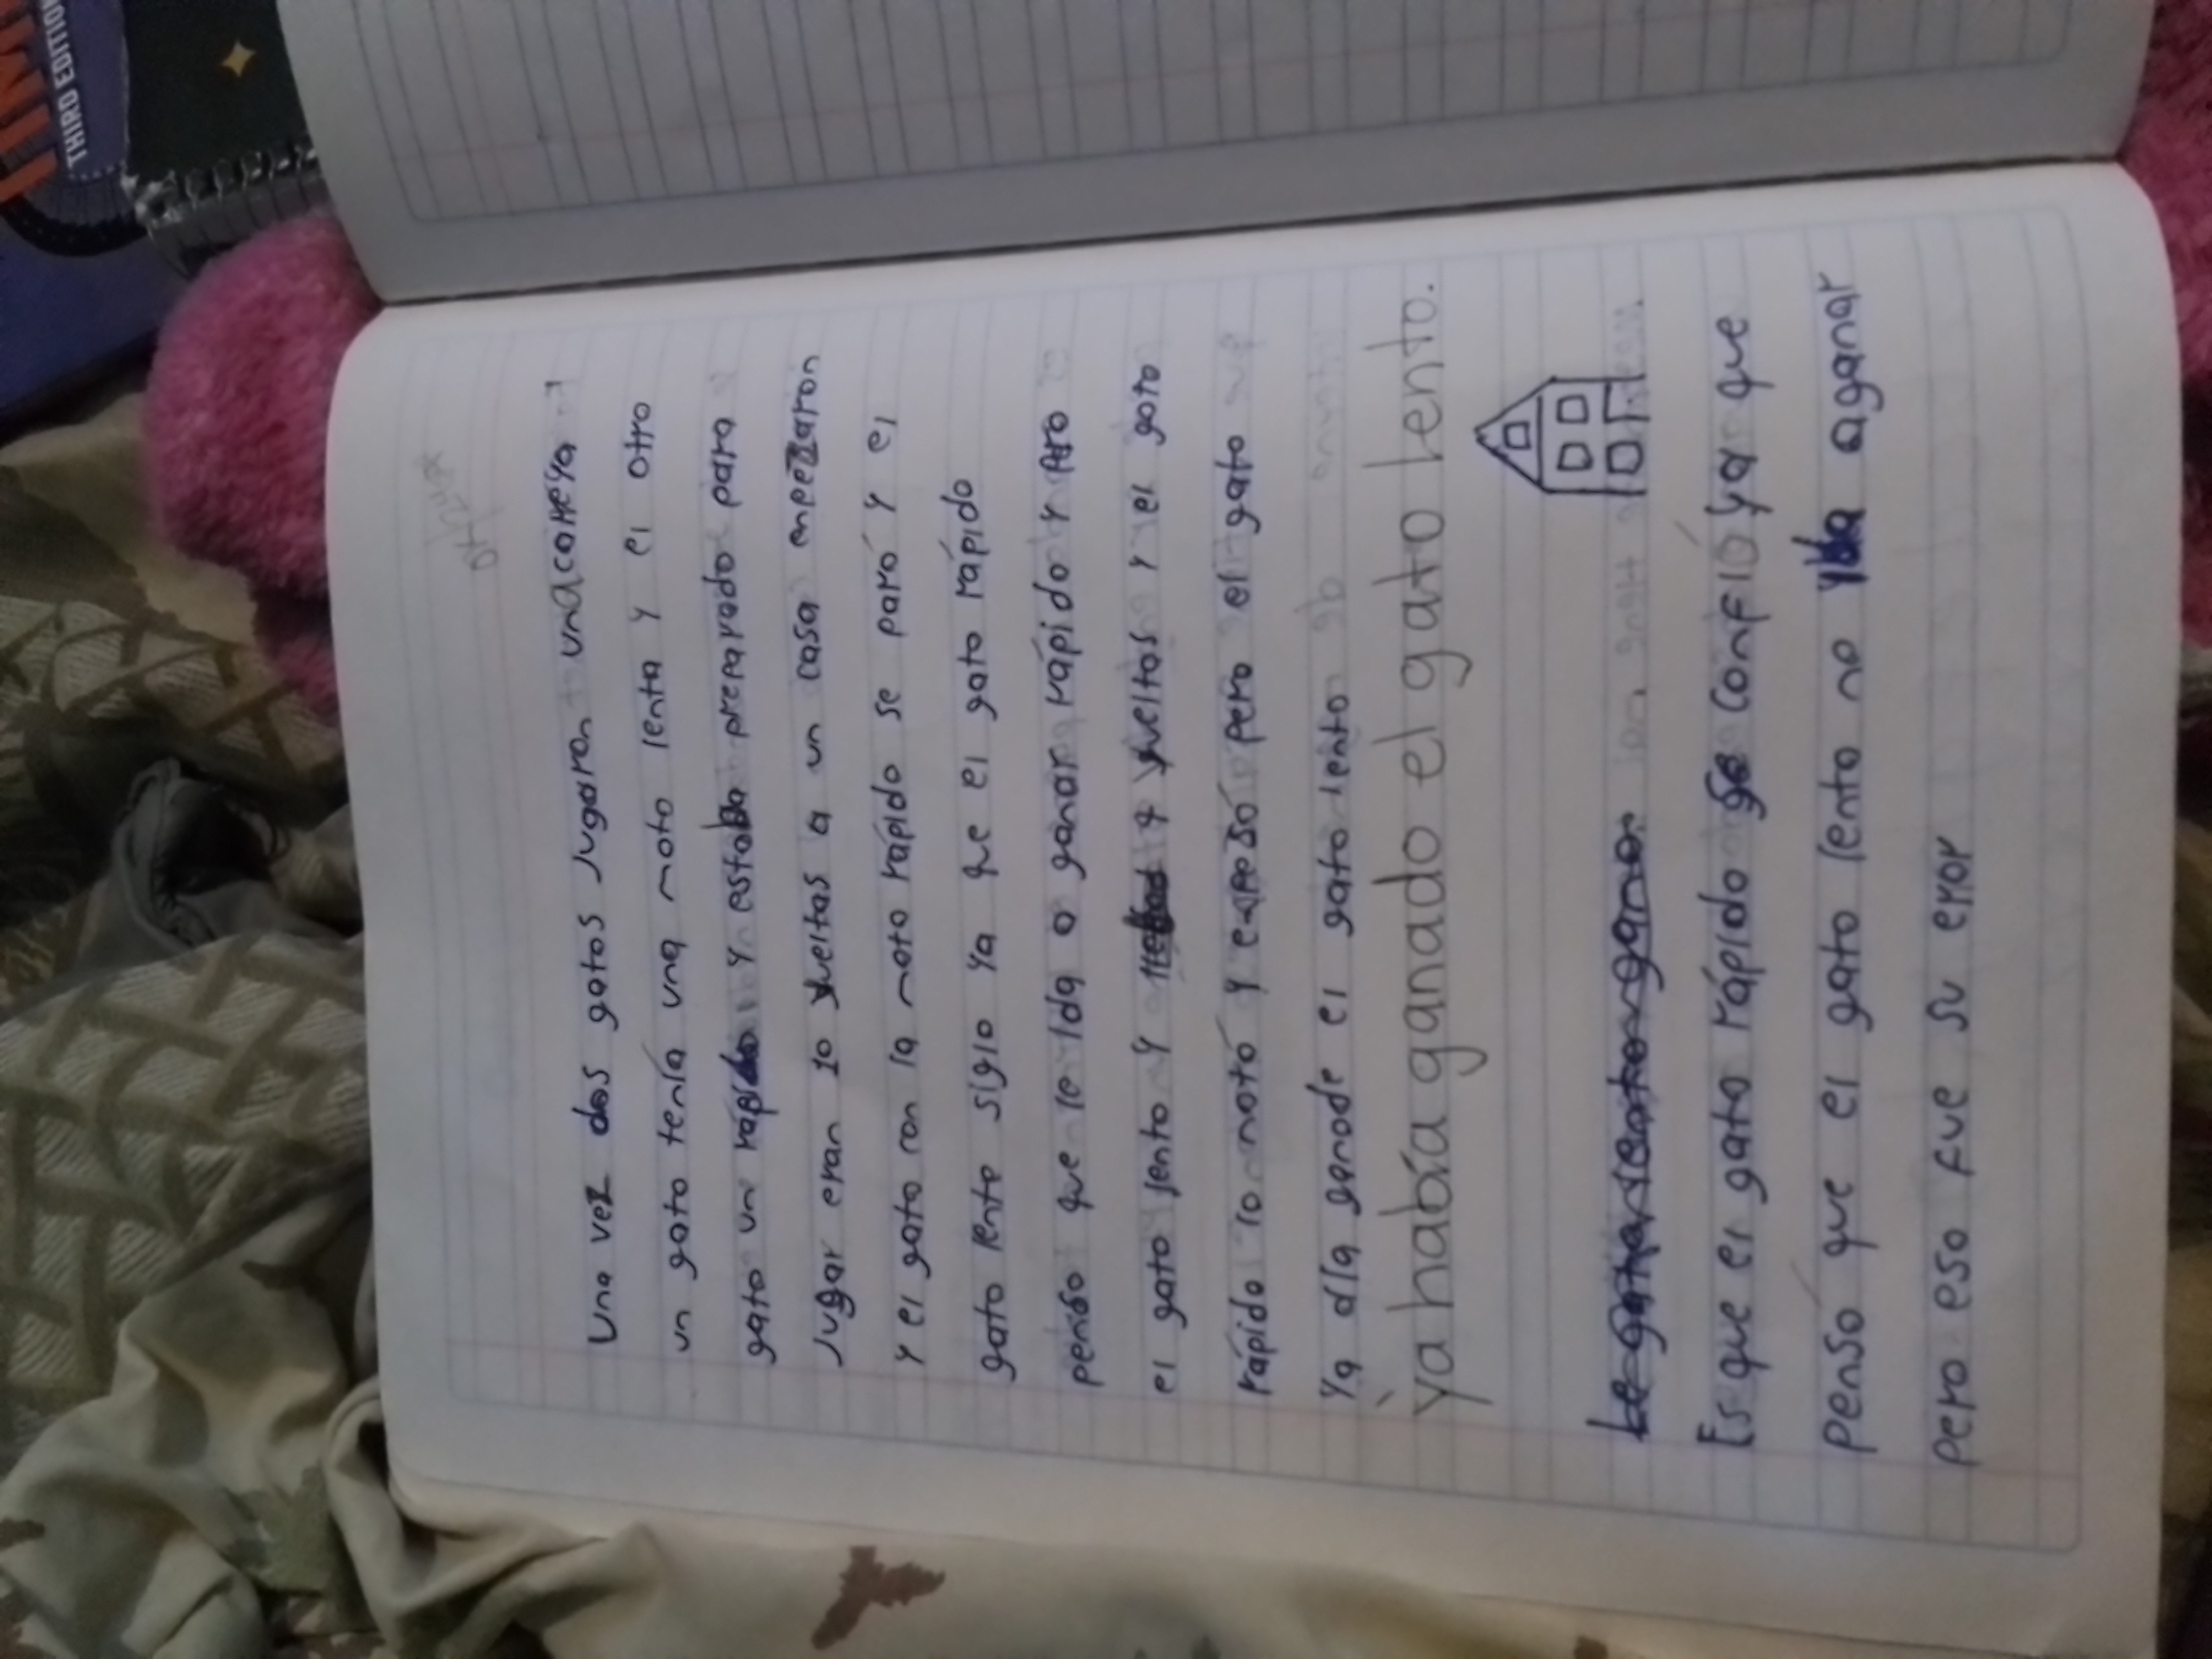 THIRD EDITION
Una vez dos gatos Jugaron una carreya
un gato tenía una moto lenta y el otro
gato un rápido y estaba preparado para
Jugar eran 10 vueltas a un casa enpezaron
y el gato con la moto rápido se paró y el
gato lento sigio ya que el gato rápido
penso que le ida a ganar rápido y pro
el gato lento y 4 vueltas y el gato
rápido lo notó y pero el gato
ya día ganode el gato lento
ya había ganado el gato lento.
Es que el gato rápido se confió ya que
pensó que el gato lento no iba aganar
pero eso fue su error